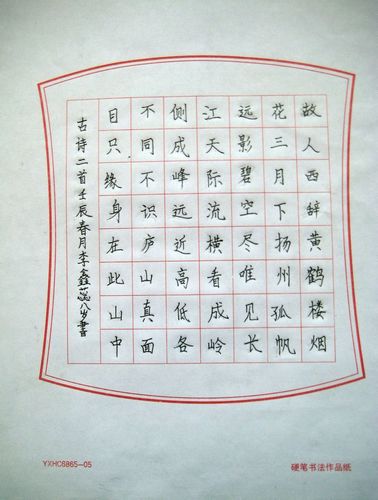 故人西辞黄鹤楼烟
花三月下扬州孤帆
远影碧空尽唯见长
江天际流横看成岭
侧成峰远近高低各
不同不识庐山真面
目只缘身在此山中
古诗二首壬辰春月李鑫蕊八岁書
YXHC6865-05
硬笔书法作品纸